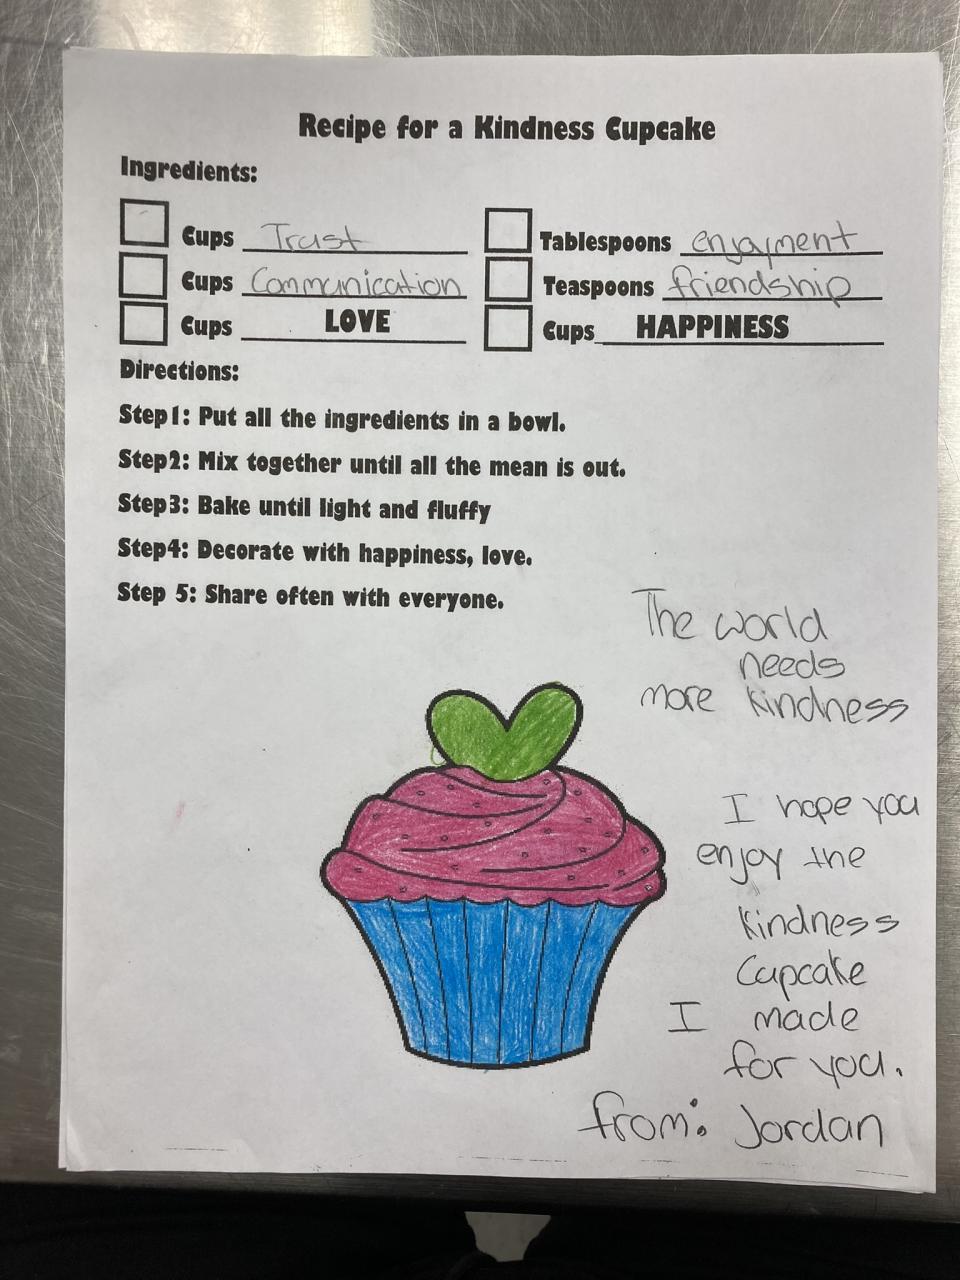 Recipe for a Kindness Cupcake
Ingredients:
Cups Trust
Tablespoons enjoyment
Cups Communication
Teaspoons friendship
Cups LOVE
Cups HAPPINESS
Directions:
Step1: Put all the ingredients in a bowl.
Step2: Mix together until all the mean is out.
Step3: Bake until light and fluffy
Step4: Decorate with happiness, love.
Step 5: Share often with everyone.
The world
needs
more kindness
I hope you
enjoy the
kindness
Cupcake
I made
for you.
from: Jordan